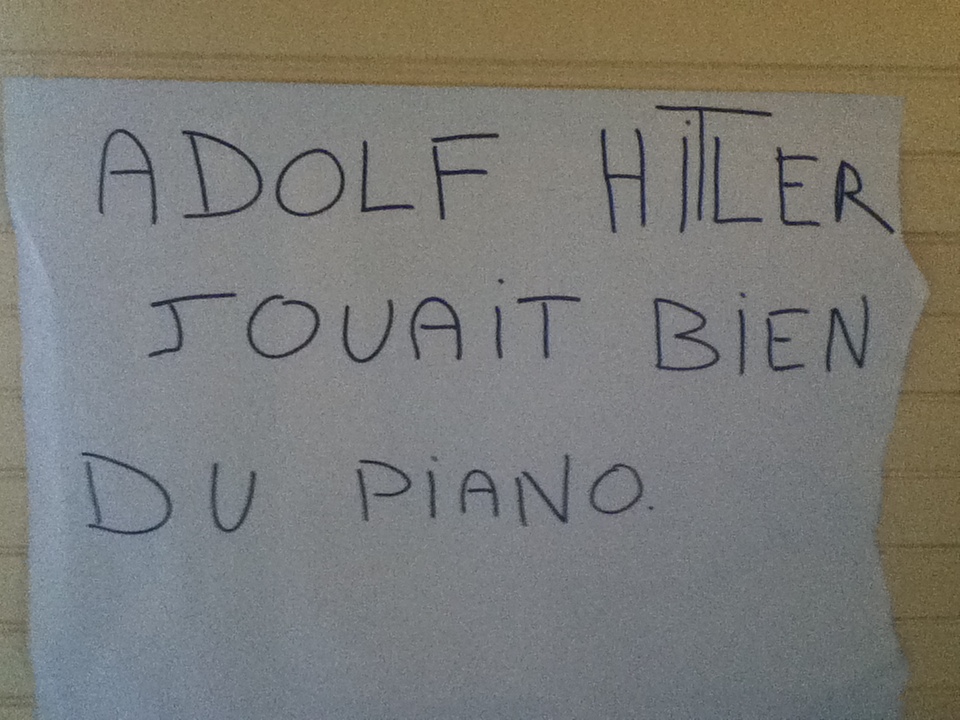 ADOLF HiTLER
JOUAiT BiEN
DU PiANO.